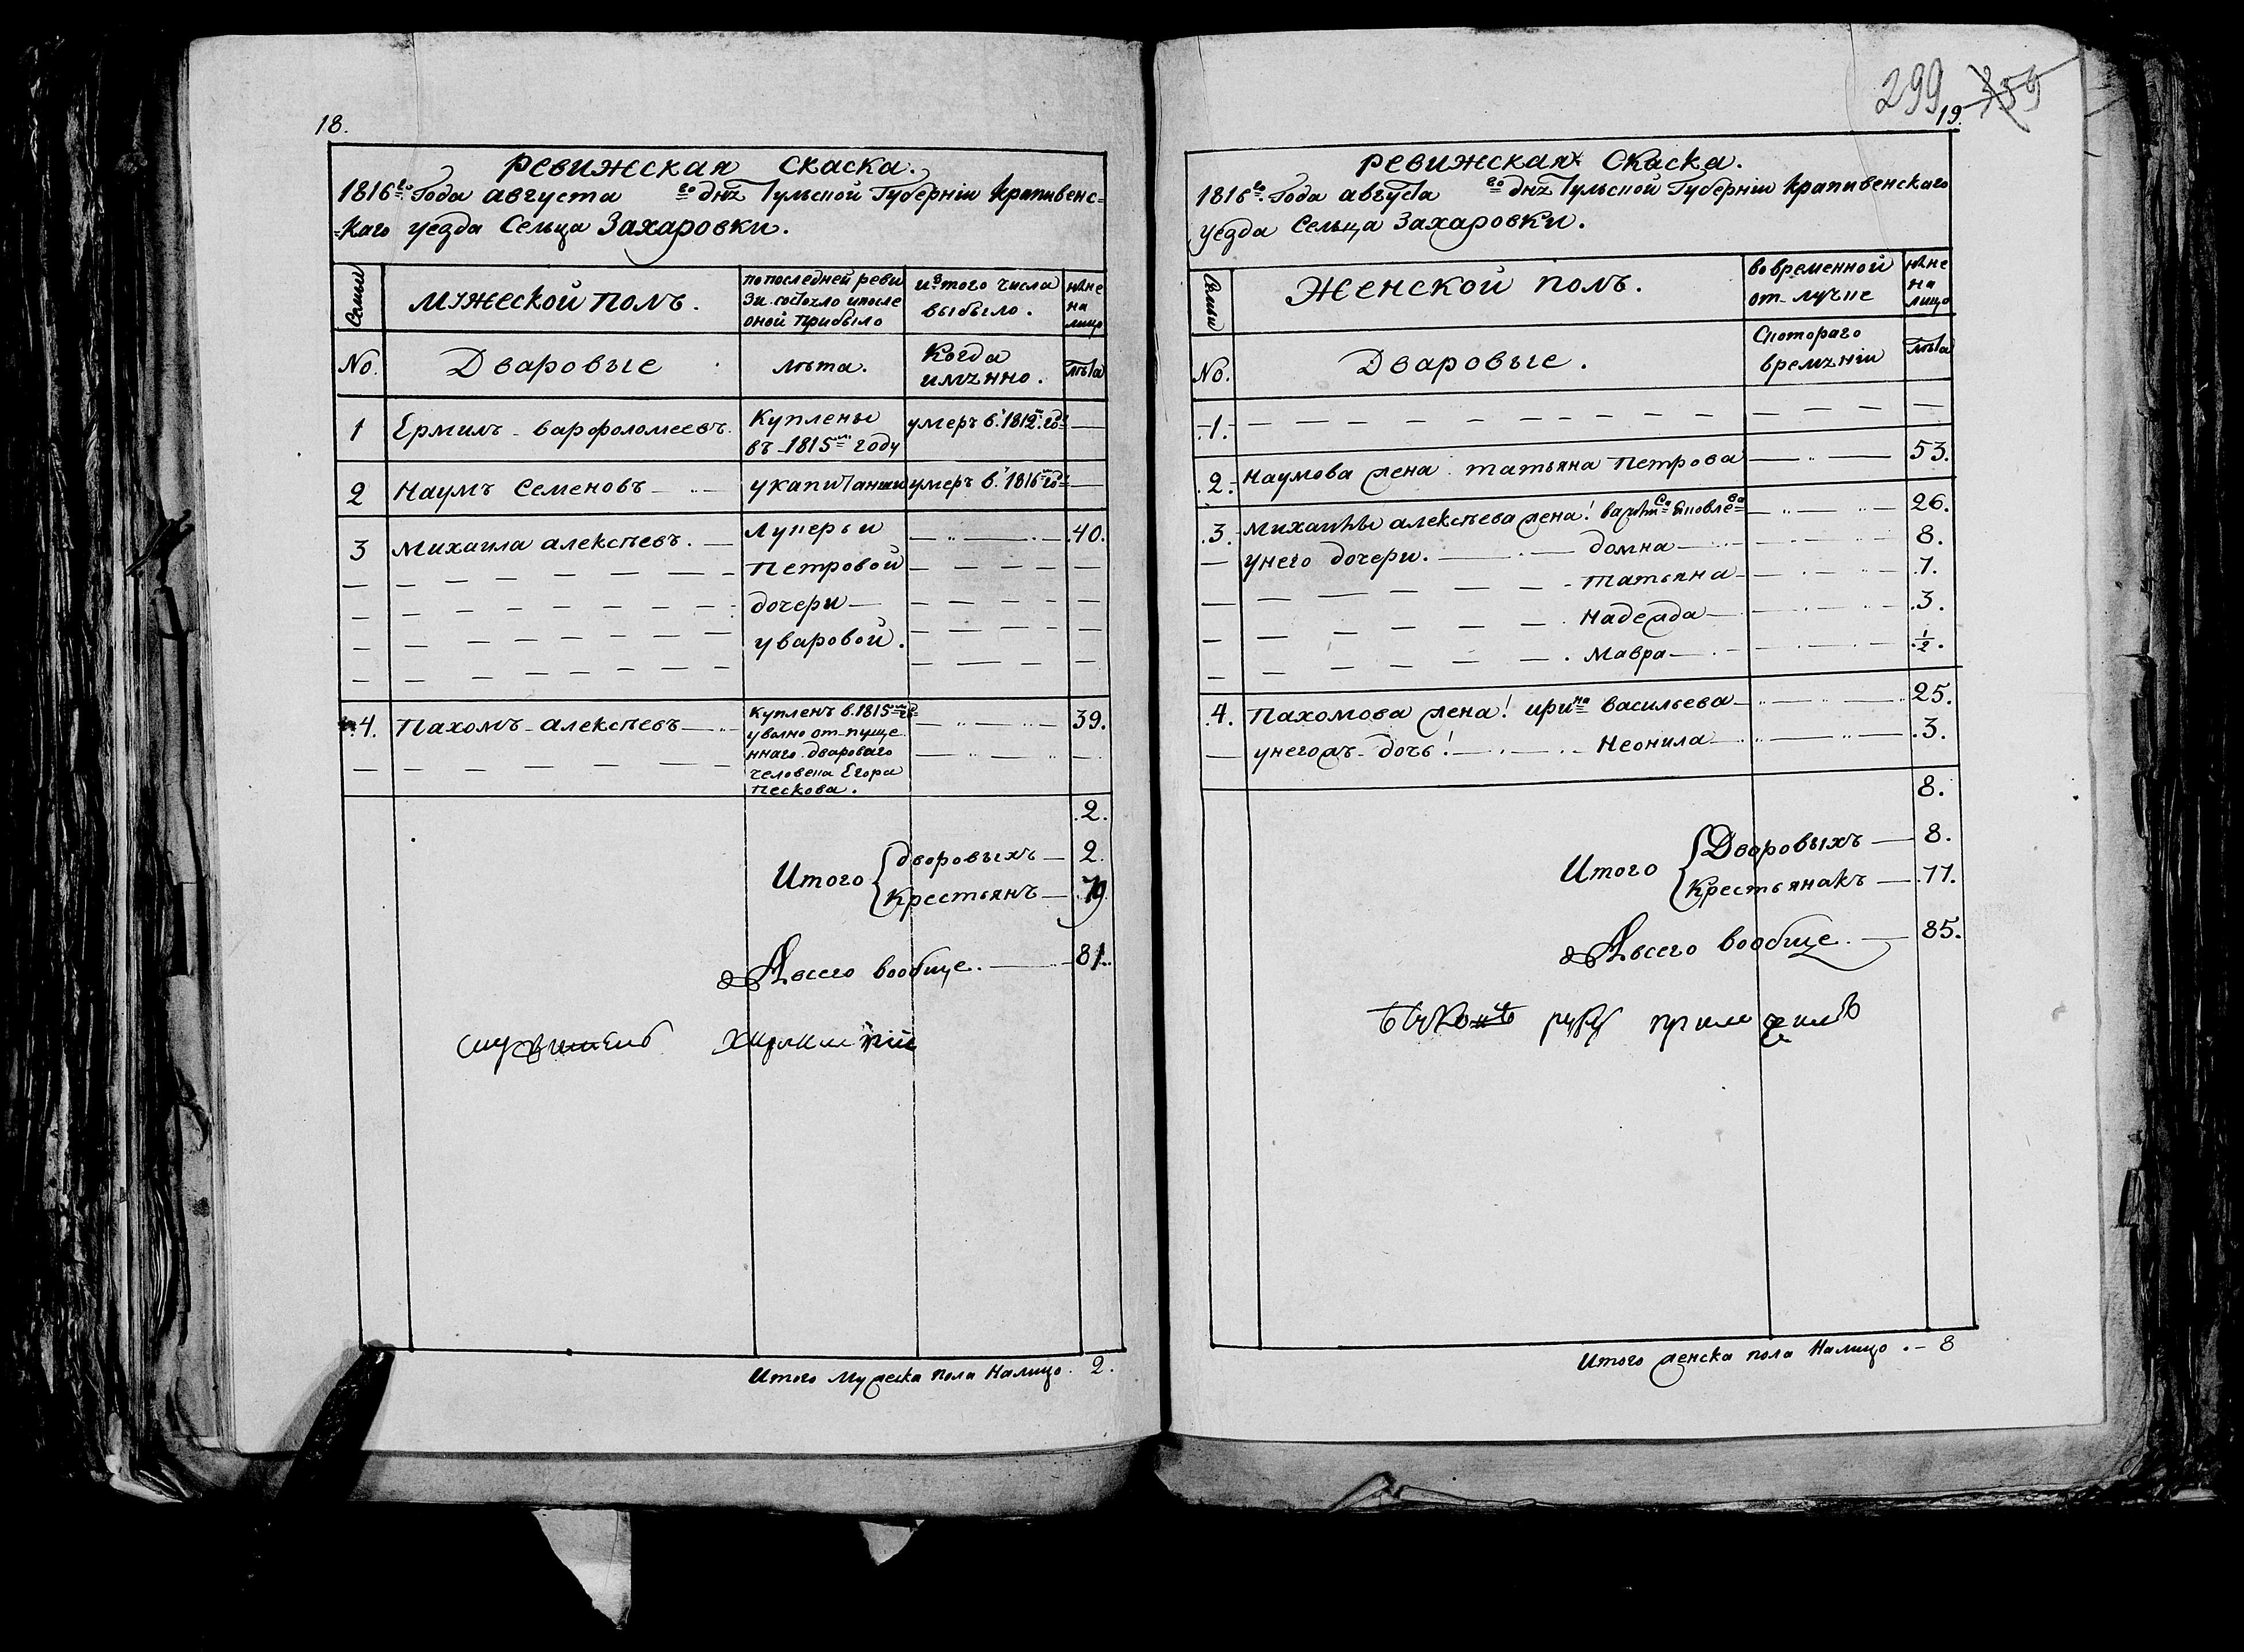 18.
Ревижская скаска.
1816го Года августа го днz Тульской Губерніи Крапивенс=
=каго уезда Сельца Захаровки.
Семьи
мужеской полъ.
попоследней реви
зи состояло ипосле
оной прибыло
изтого числа
выбыло.
нне
на
лицо
No.
Дваровые
лѣта.
Когда
имzнно.
лѣта
1
Ермилъ варфоломеевъ.
Куплены
въ 1815м году
умеръ в. 1812м год
2
Наумъ Семеновъ
укапитанши
умеръ в. 1816м год
3
Михаила алексѣевъ.
Лукерьи
.40.
Петровой
дочери
уваровой.
.4.
Пахомъ Алексѣевъ
купленъ в. 1815м го
уволно отпуще
ннаго двароваго
человека Егора
Пескова.
39.
.2.
Итого
дворовыхъ
2.
Крестьянъ
79
Авсего вообще.
81.
Итого Мужеска пола Налицо. 2.
299
359
19.
Ревижская Скаска.
1816го Года августа го днz Тульской Губерніи Крапивенскаго
уезда Сельца Захаровки.
Семьи
Женской полъ.
вовременной
отлучке
нне
на
лицо
No.
Дваровые.
Скотораго
времzніи
лѣта
.1.
.2.
Наумова жена татьяна Петрова
53.
.3.
Михаилы алексѣева жена!
26.
унего дочери.
домна
8.
Татьяна
.7.
Надежда
.3.
Мавра
.1/2.
.4.
Пахомова жена! ирина васильева
25.
унегожъ дочь! Неонила
.3.
8.
Итого
Дворовыхъ
8.
Крестьянакъ
.77.
Авсего вообще.
85.
руку приложилъ
Итого женска пола Налицо. 8